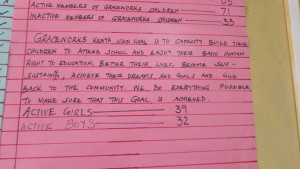 ACTIVE MEMBERS OF GRACEWORKS CHILDREN 71
INACTIVE MEMBERS OF GRACEWORKS CHILDREN 33
GRACEWORKS KENYA MAIN GOAL IS TO CAPACITY BUILD THESE
CHILDREN TO ATTEND SCHOOL AND ENJOY THEIR BASIC HUMAN
RIGHT TO EDUCATION, BETTER THEIR LIVES, BECOME SELF-
SUSTAINED, ACHIEVE THEIR DREAMS AND GOALS AND GIVE
BACK TO THE COMMUNITY. WE DO EVERYTHING POSSIBLE
TO MAKE SURE THAT THIS GOAL IS ACHIEVED.
ACTIVE GIRLS 39
ACTIVE BOYS 32